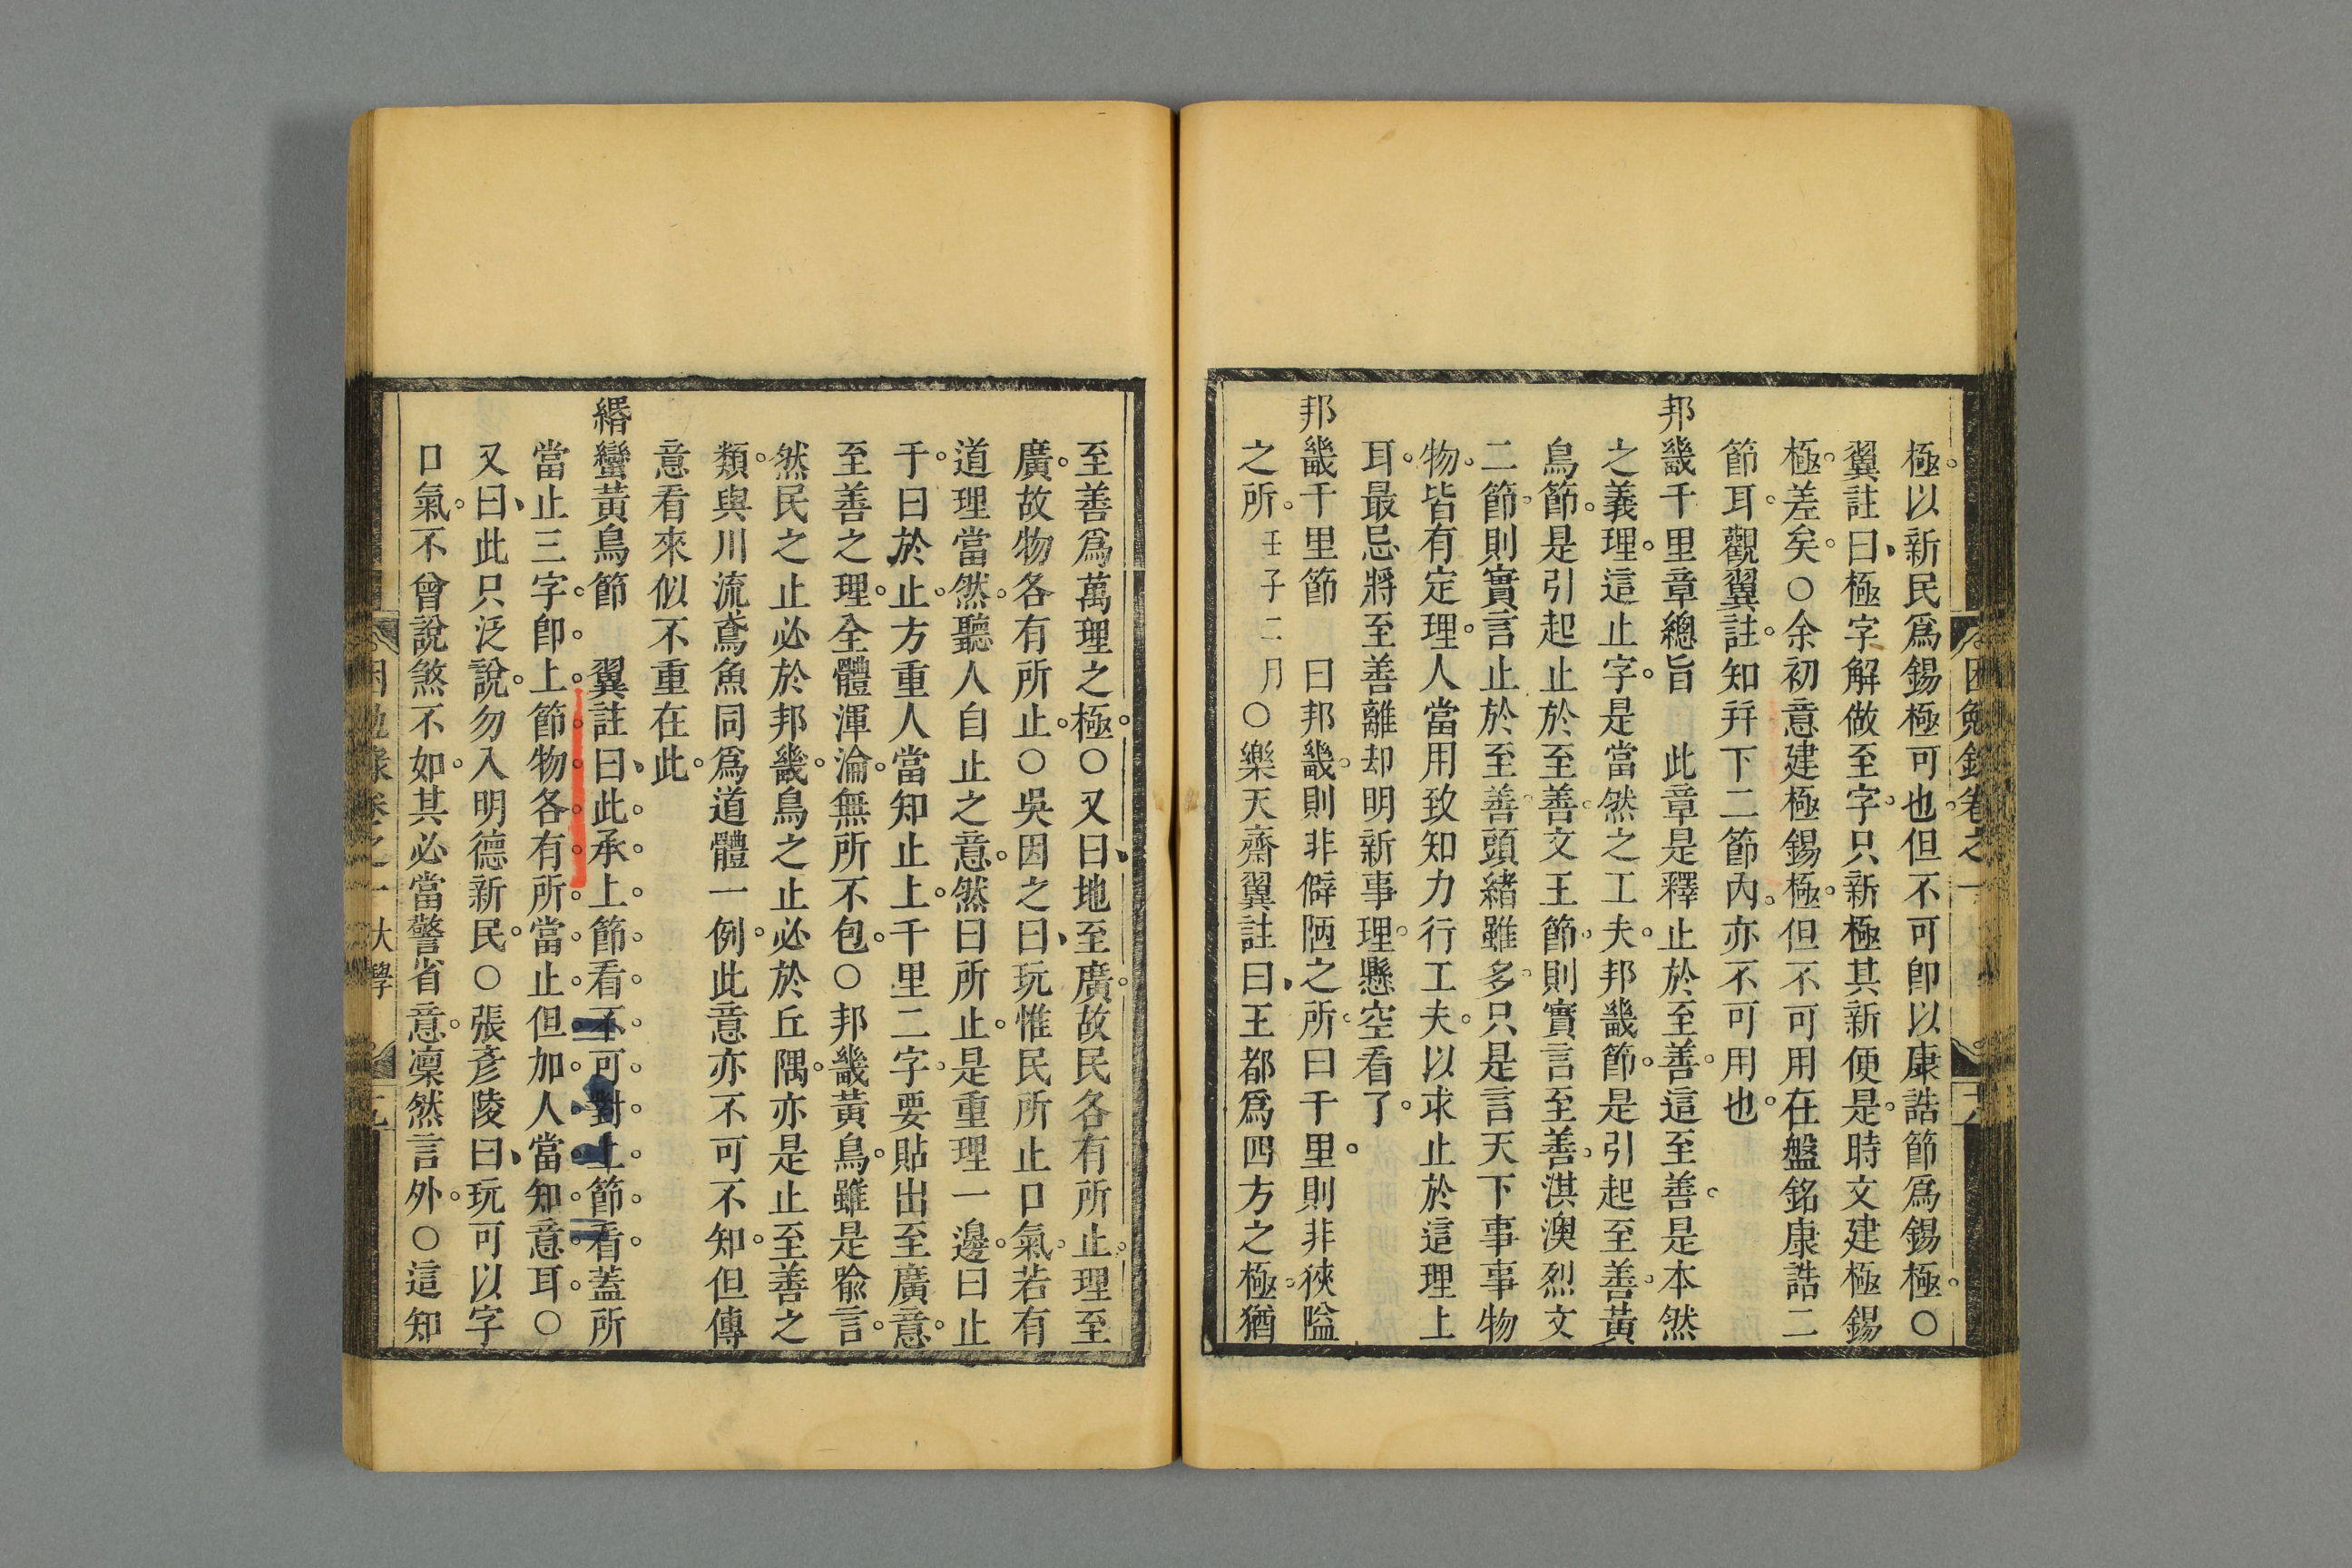 極以新民爲錫極可也但不可卽以康誥節爲錫極○
翼註曰極字解做至字只新極其新便是時文建極錫
極差矣○余初意建極錫極但不可用在盤銘康誥二
節耳觀翼註知幷下二節內亦不可用也
邦畿千里章總旨 此章是釋止於至善這至善是本然
之義理這止字是當然之工夫邦畿節是引起至善黃
鳥節是引起止於至善文王節則實言至善淇澳烈文
二節則實言止於至善頭緒雖多只是言天下事事物
物皆有定理人當用致知力行工夫以求止於這理上
耳最忌將至善離却明新事理懸空看了
邦畿千里節 曰邦畿則非僻陋之所曰千里則非狹隘
之所壬子二月○樂天齋翼註曰王都爲四方之極猶
至善爲萬理之極○又曰地至廣故民各有所止理至
廣故物各有所止○吳因之曰玩惟民所止口氣若有
道理當然聽人自止之意然曰所止是重理一邊曰止
于曰於止方重人當知止上千里二字要貼出至廣意
至善之理全體渾淪無所不包○邦畿黃鳥雖是喩言
然民之止必於邦畿鳥之止必於丘隅亦是止至善之
類與川流鳶魚同爲道體一例此意亦不可不知但傳
意看來似不重在此
緡蠻黃鳥節 翼註曰此承上節看不可對上節看蓋所
當止三字卽上節物各有所當止但加人當知意耳○
又曰此只泛說勿入明德新民○張彥陵曰玩可以字
口氣不曾說煞不如其必當警省意凜然言外○這知
困勉錄卷之一 大學